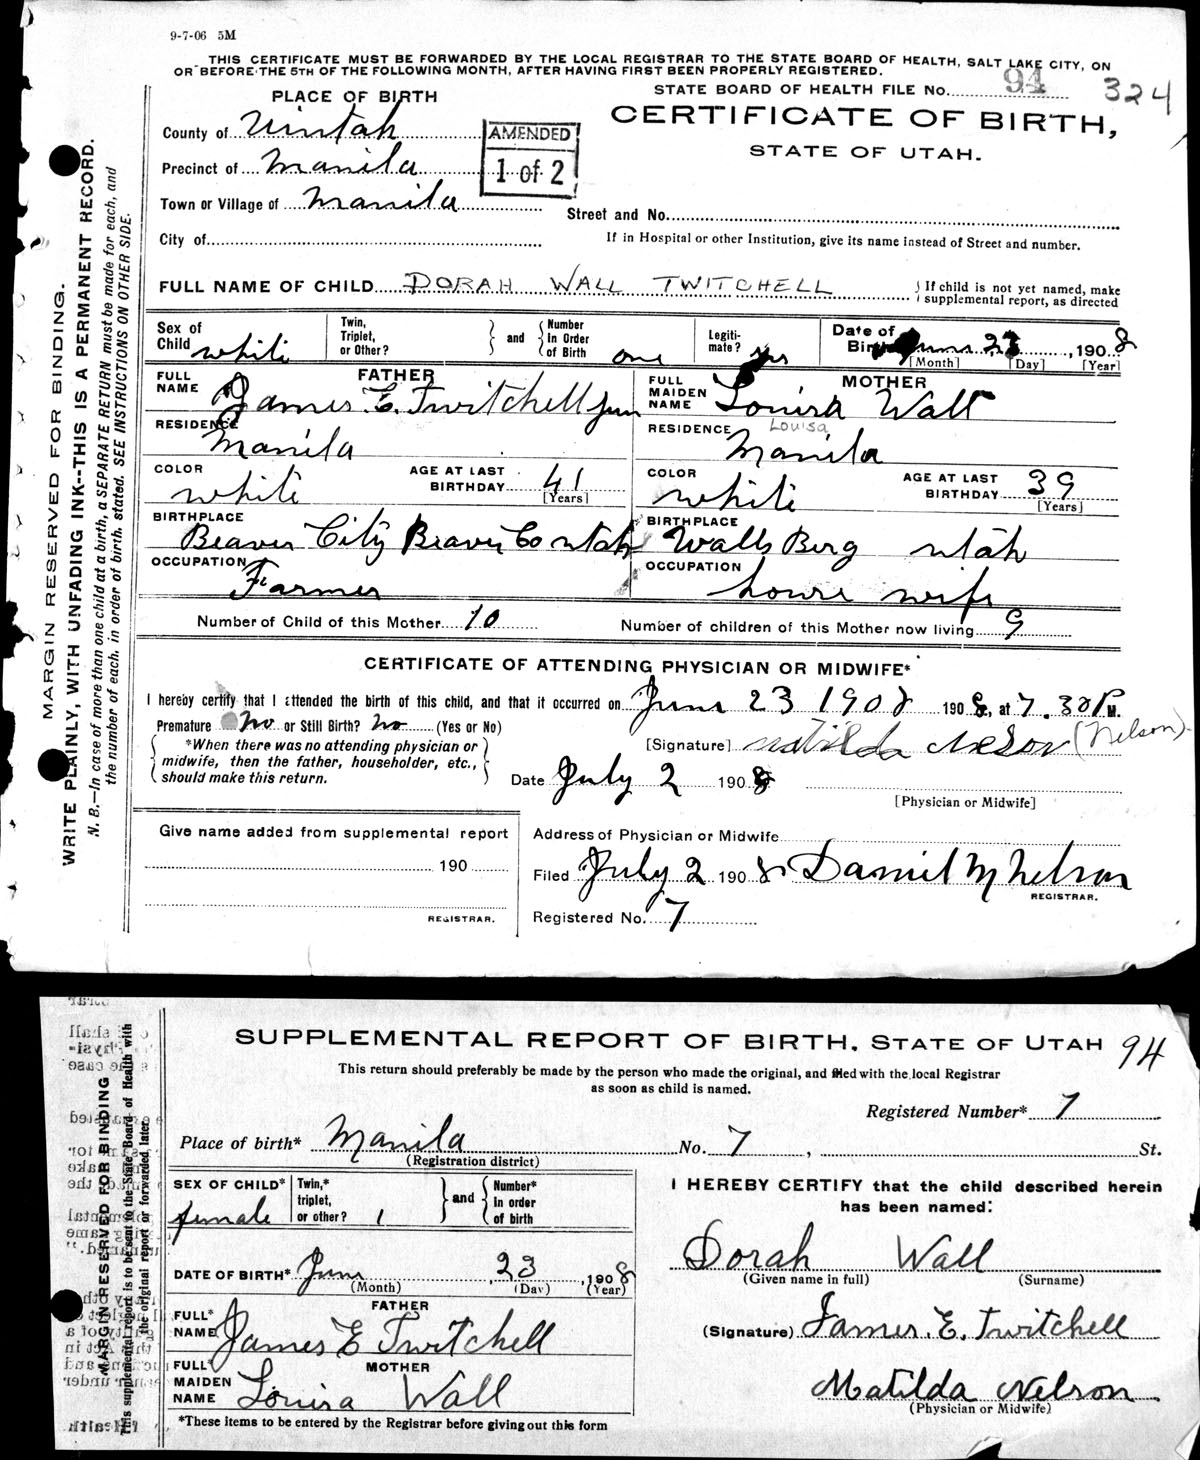 9-7-06 5M
THIS CERTIFICATE MUST BE FORWARDED BY THE LOCAL REGISTRAR TO THE STATE BOARD OF HEALTH, SALT LAKE CITY, ON
OR BEFORE THE 5TH OF THE FOLLOWING MONTH, AFTER HAVING FIRST BEEN PROPERLY REGISTERED.
STATE BOARD OF HEALTH FILE No. 94 324
PLACE OF BIRTH
CERTIFICATE OF BIRTH,
STATE OF UTAH.
County of Uintah
AMENDED
1 of 2
Precinct of Manila
Town or Village of Manila
Street and No.
City of
If in Hospital or other Institution, give its name instead of Street and number.
FULL NAME OF CHILD DORAH WALL TWITCHELL
If child is not yet named, make
supplemental report, as directed
Sex of Child white
Twin, Triplet, or Other? and Number In Order of Birth one
Legiti-mate? yes
Date of Birth June 23, 1908
[Month] [Day] [Year]
FATHER
FULL NAME James E. Twitchell jun
RESIDENCE Manila
COLOR white
AGE AT LAST BIRTHDAY 41 [Years]
BIRTHPLACE Beaver City Beaver Co utah
OCCUPATION Farmer
MOTHER
FULL MAIDEN NAME Louisa Wall
Louisa
RESIDENCE Manila
COLOR white
AGE AT LAST BIRTHDAY 39 [Years]
BIRTHPLACE Walls Berg utah
OCCUPATION house wife
Number of Child of this Mother 10
Number of children of this Mother now living 9
CERTIFICATE OF ATTENDING PHYSICIAN OR MIDWIFE*
I hereby certify that I attended the birth of this child, and that it occurred on June 23 1908 1908, at 7.30 P M.
Premature no or Still Birth? no (Yes or No)
*When there was no attending physician or
midwife, then the father, householder, etc.,
should make this return.
[Signature] Matilda Nelson (Nelson)
Date July 2 1908
[Physician or Midwife]
Give name added from supplemental report
190
REGISTRAR.
Address of Physician or Midwife
Filed July 2 1908 Daniel M Nelson
REGISTRAR.
Registered No. 7
MARGIN RESERVED FOR BINDING.
WRITE PLAINLY, WITH UNFADING INK--THIS IS A PERMANENT RECORD.
N. B.—In case of more than one child at a birth, a SEPARATE RETURN must be made for each, and
the number of each, in order of birth, stated. SEE INSTRUCTIONS ON OTHER SIDE.
SUPPLEMENTAL REPORT OF BIRTH, STATE OF UTAH 94
This return should preferably be made by the person who made the original, and filed with the local Registrar
as soon as child is named.
Registered Number* 7
Place of birth* Manila No. 7, St.
(Registration district)
SEX OF CHILD* female
Twin,* triplet, or other? 1 and Number* in order of birth
DATE OF BIRTH* June 23, 1908
(Month) (Day) (Year)
FATHER
FULL* NAME James E Twitchell
MOTHER
FULL* MAIDEN NAME Louisa Wall
*These items to be entered by the Registrar before giving out this form
I HEREBY CERTIFY that the child described herein
has been named:
Dorah Wall
(Given name in full) (Surname)
(Signature) James. E. Twitchell
Matilda Nelson
(Physician or Midwife)
MARGIN RESERVED FOR BINDING
This supplemental report is to be sent to the State Board of Health with
the original report or forwarded later.